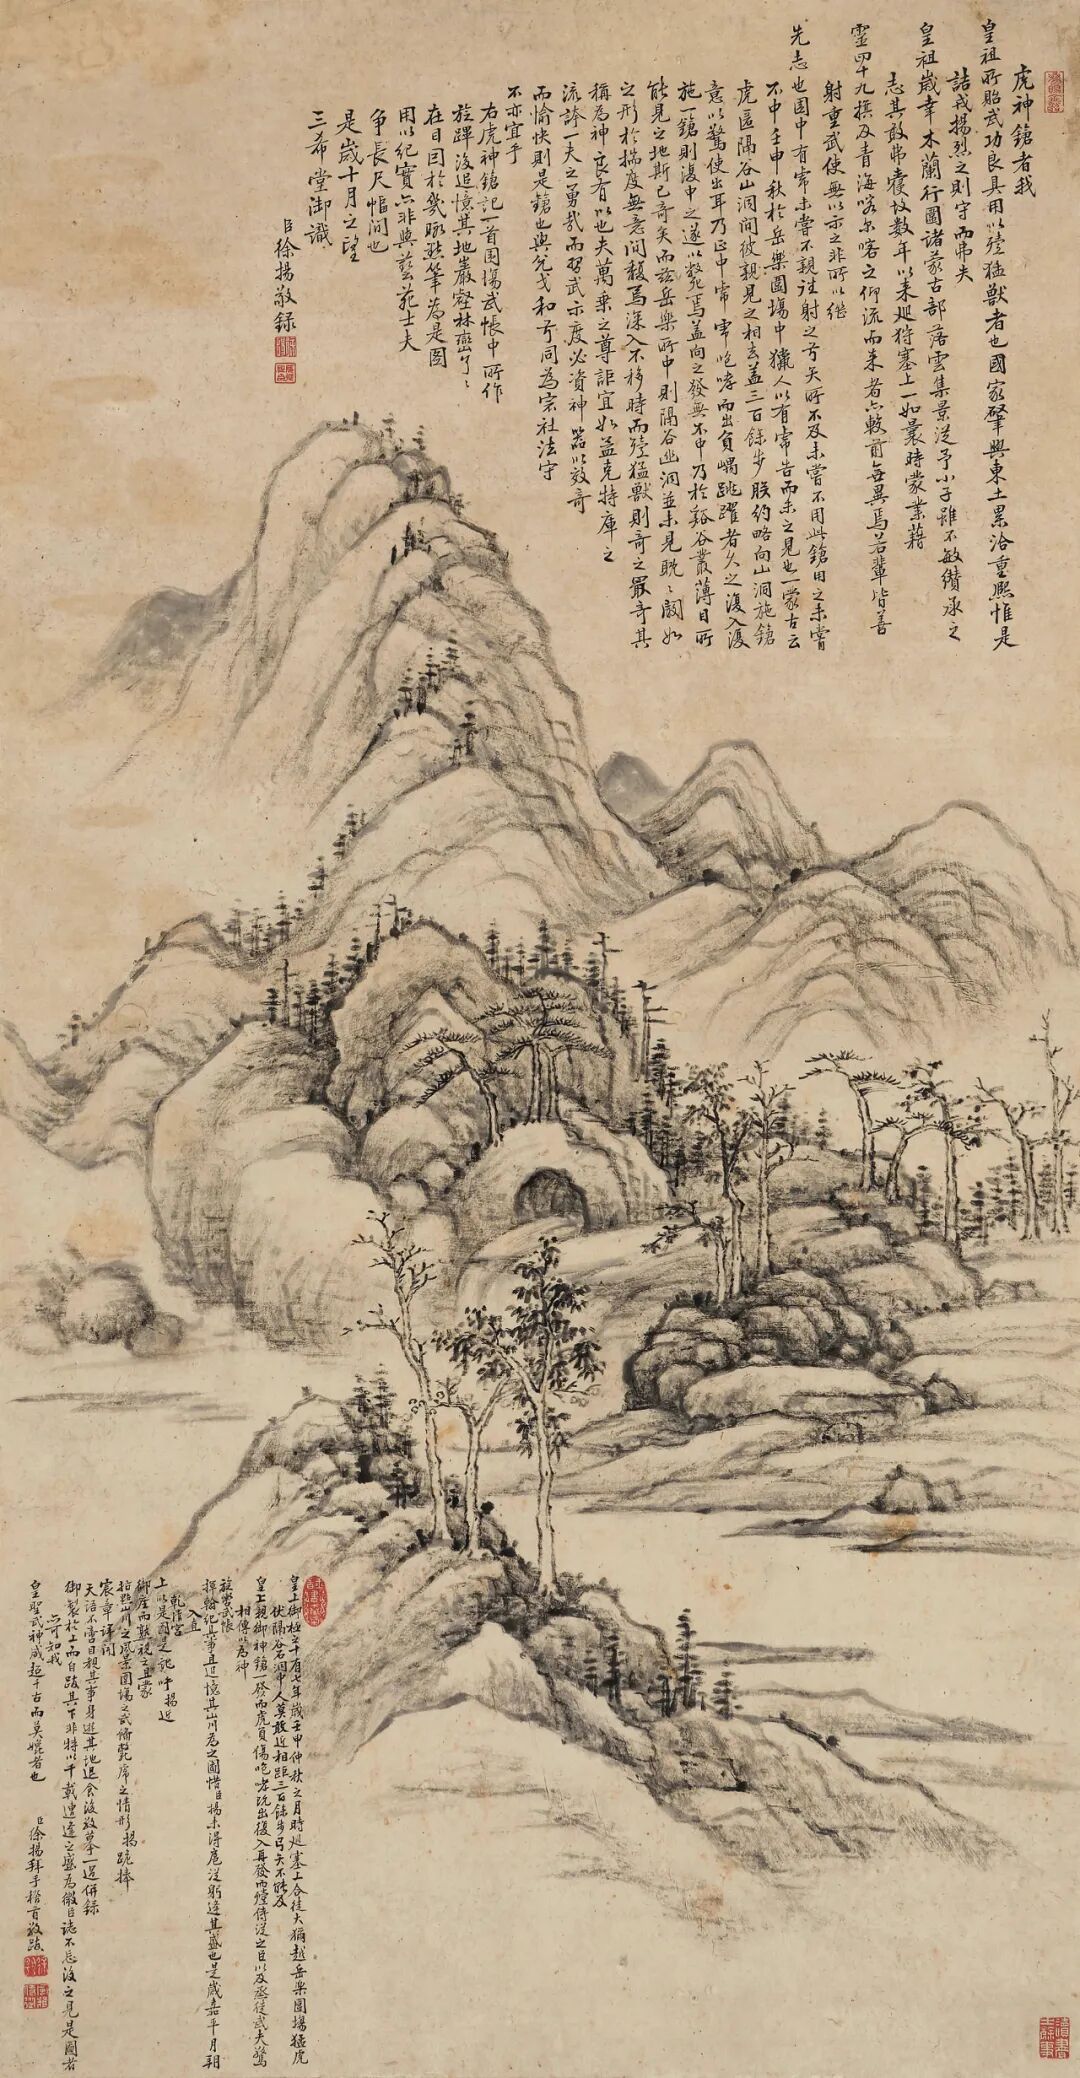 虎神鎗者我
皇祖所貽武功良具用以殪猛獸者也國家肇興東土累洽重熙惟是
詰戎揚烈之則守而弗失
皇祖歲幸木蘭行圍諸蒙古部落雲集景從予小子雖不敏纘承之
志其敢弗蘉故數年以來廵狩塞上一如曩時蒙業藉
靈四十九旗及青海喀尔喀之仰流而来者亦較前每異焉若輩皆善
射重武使無以示之非所以継
先志也圍中有常未嘗不親往射之弓矢所不及未嘗不用此鎗用之未嘗
不中壬申秋於岳樂圍塲中獵人以有常告而未之見也一蒙古云
虎匿隔谷山洞間彼親見之相去盖三百餘步朕約略向山洞施鎗
意以驚使出耳乃正中常常咆哮而出負嵎跳躍者久之復入復
施一鎗則復中之遂以斃焉盖向之發無不中乃於谿谷叢薄目所
能見之地斯已奇矣而茲岳樂所中則隔谷幽洞並未見眈眈闞如
之形於揣度無意間馥焉深入不移時而殪猛獸則奇之最奇其
稱為神良有以也夫萬乗之尊詎宜如孟克特庫之
流誇一夫之勇哉而習武示度必資神器以效奇
而愉快則是鎗也與兌戈和弓同為宗社法守
不亦宜乎
右虎神鎗記一首圍塲武帳中所作
旋蹕後追憶其地巖壑林巒了了
在目因於幾暇㸃筆為是圖
用以紀實亦非與藝苑士夫
爭長尺幅間也
是歲十月之望
三希堂御識
臣徐揚敬錄
皇上御極之十有七年歲壬申仲秋之月時廵塞上合徒大獮越岳樂圍塲猛虎
伏隔谷石洞中人莫敢近相距三百餘步弓矢不能及
皇上親御神鎗一發而虎負傷咆哮既出復入再發而殪侍從之臣以及丞徒武夫驚
相傳以為神
旋蹕武帳
揮翰紀其事且追憶其山川為之圖惜臣揚未得扈從躬逢其盛也是歲嘉平月朔
入直
乾清宮
上以是圖是記呼揚近
御座而敬視之且蒙
指點山川之風景圍塲之武備氊席之情形揚跪捧
宸章詳聞
天語不啻目覩其事身逰其地退食後敬摹一過併録
御製於上而自跋其下非特以千載遭逢之盛為微臣誌不忘後之見是圖者
亦可知我
皇聖武神威超千古而莫媲者也
臣徐揚拜手稽首敬跋